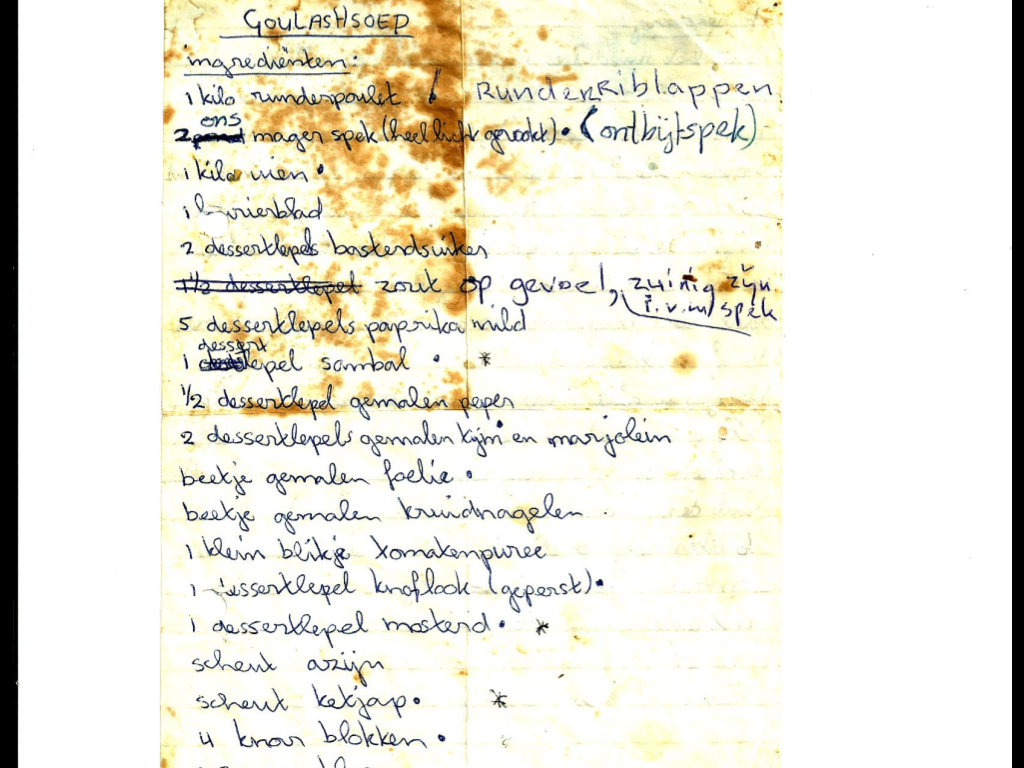 GOULASHSOEP
ingrediënten:
1 kilo runderpoulet / RUNDERRIBLAPPEN
ons
2 mager spek (heel licht gerookt). (ontbijtspek)
1 kilo uien.
1 laurierblad
2 dessertlepels basterdsuiker
1½ dessertlepel zout op gevoel, zuinig zijn
i.v.m. spek
5 dessertlepels paprika mild
dessert
1 lepel sambal . *
½ dessertlepel gemalen peper
2 dessertlepels gemalen kijm en marjolein
beetje gemalen foelie .
beetje gemalen kruidnagelen .
1 klein blikje tomatenpuree
1 dessertlepel knoflook (geperst).
1 dessertlepel mosterd. *
scheut azijn
scheut ketjap. *
4 knor blokken .